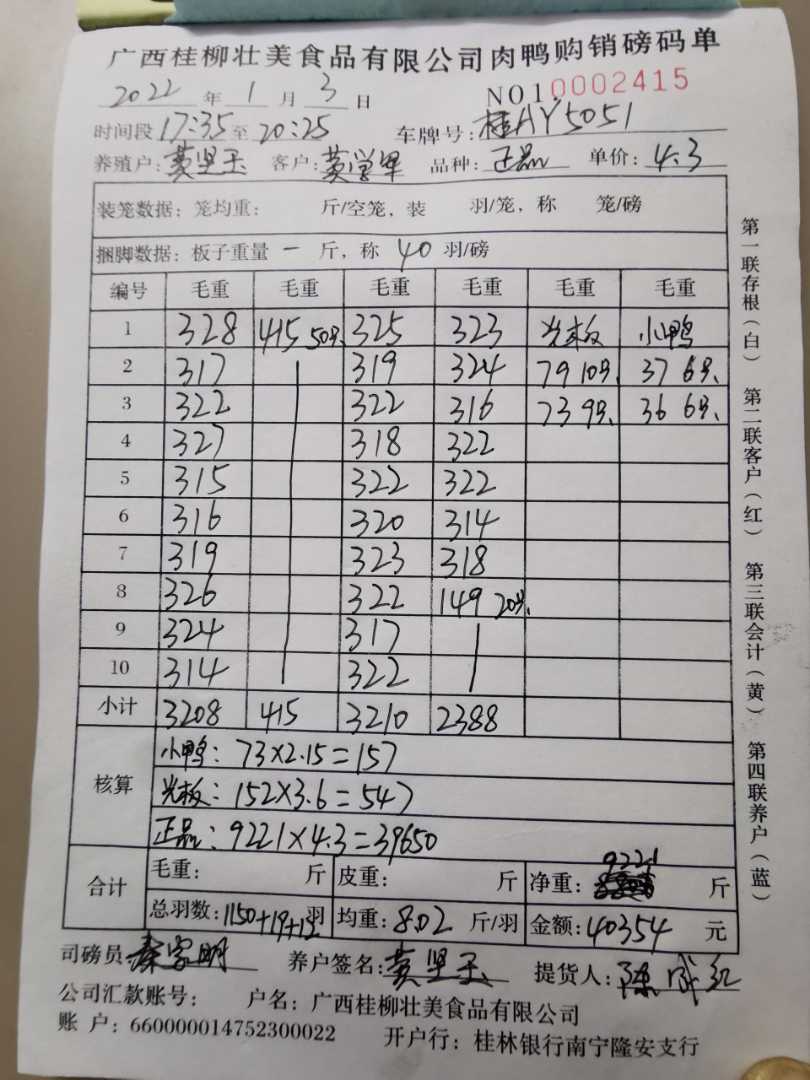 广西桂柳壮美食品有限公司肉鸭购销磅码单
2022 年 1 月 3 日 NO10002415
时间段 17:35 至 20:25 车牌号: 桂AY5051
养殖户: 黄坚玉 客户: 黄学甲 品种: 正品 单价: 4.3
装笼数据: 笼均重: 斤/空笼, 装 羽/笼, 称 笼/磅
捆脚数据: 板子重量 一 斤, 称 40 羽/磅
编号 毛重 毛重 毛重 毛重 毛重 毛重
1 328 415 50只 325 323 光板 小鸭
2 317 319 324 79 10只 37 6只
3 322 322 316 73 9只 36 6只
4 327 318 322
5 315 322 322
6 316 320 314
7 319 323 318
8 326 322 149 20只
9 324 317
10 314 322
小计 3208 415 3210 2388
核算
小鸭: 73×2.15=157
光板: 152×3.6=547
正品: 9221×4.3=39650
合计
毛重: 斤 皮重: 斤 净重: 9221 斤
总羽数: 1150+19+12 羽 均重: 8.02 斤/羽 金额: 40354 元
司磅员: 秦家明 养户签名: 黄坚玉 提货人: 陈成红
公司汇款账号: 户名: 广西桂柳壮美食品有限公司
账 户: 660000014752300022 开户行: 桂林银行南宁隆安支行
第一联存根(白) 第二联客户(红) 第三联会计(黄) 第四联养户(蓝)